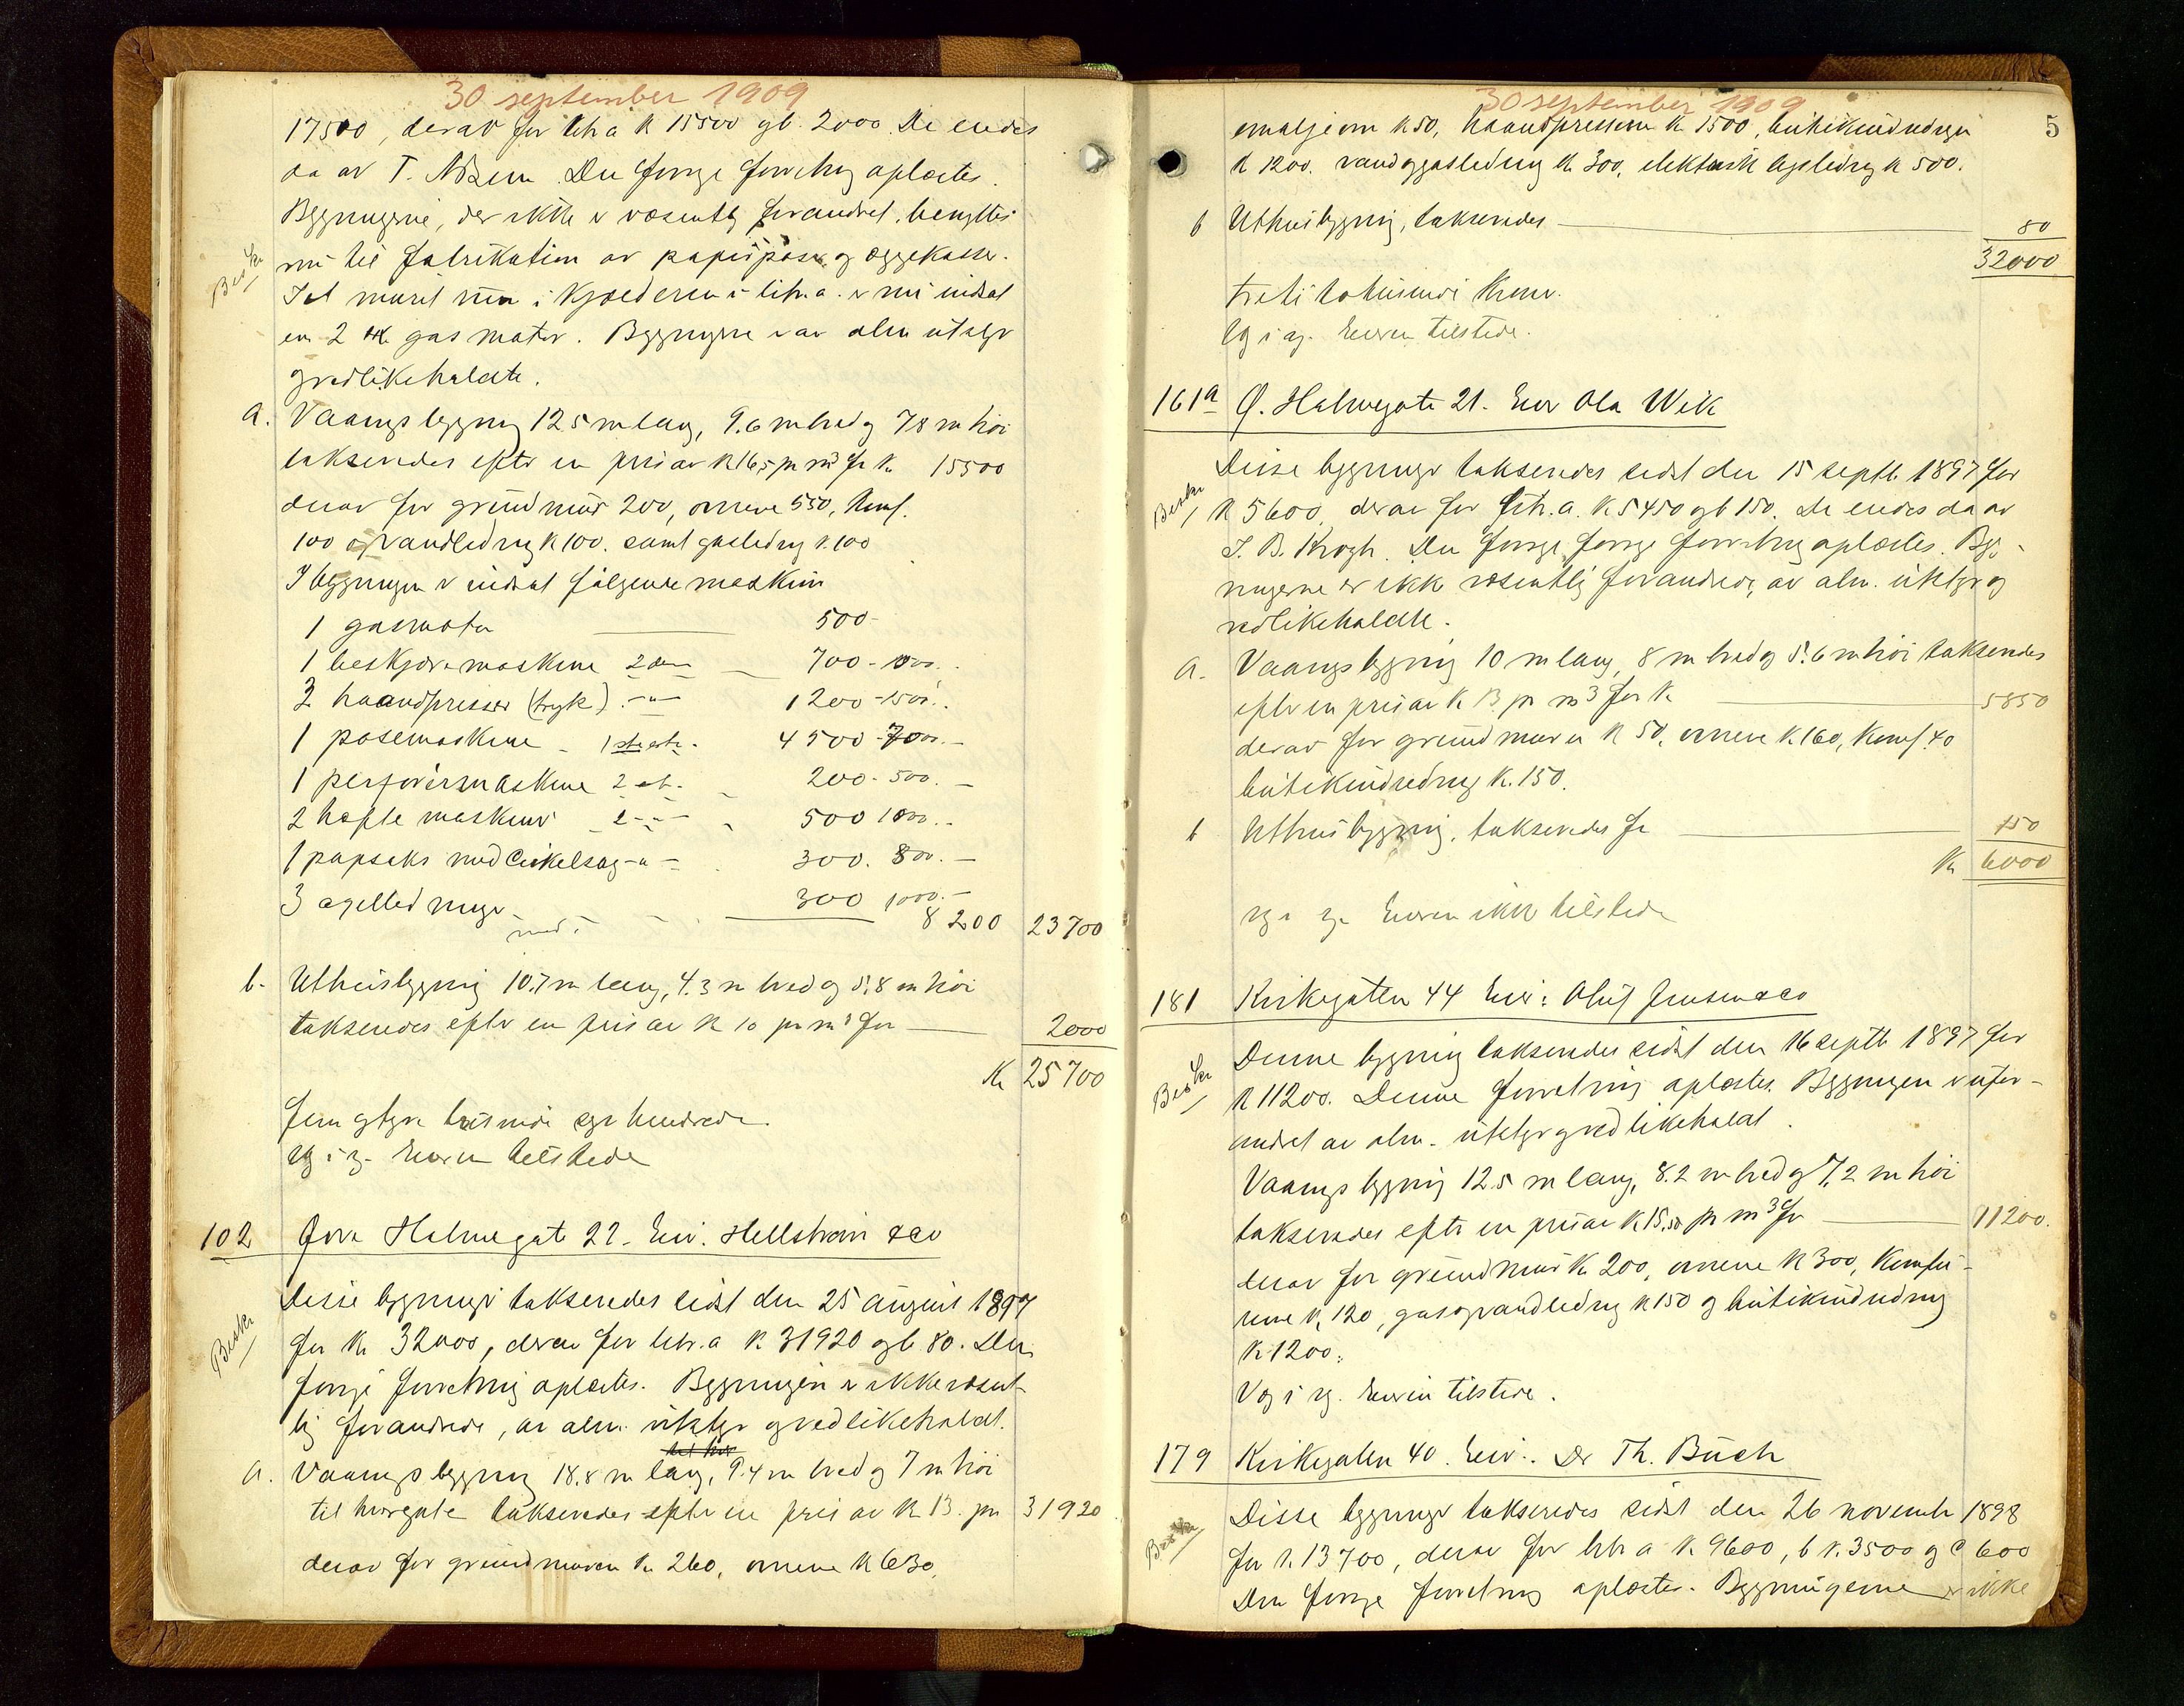 30 september 1909
17500, derav for litr a K 15500 og b. 2000. De eiedes
da av T. Den forrige forretning oplæstes.
Bygningerne, der ikke er væsentlig forandret, benyttes
Beskr
nu til fabrikation av papirposer og æggekasser.
I et muret rum i Kjælderen i litr. a. er nu indsat
en 2 HK gasmotor. Bygningerne er av alm utstyr
og vedlikeholdte.
a. Vaaningsbygning 12.5 m lang, 9.6 m bred og 7.8 m høi
takseredes efter en pris av K 16,5 pr m³ for K 15500
derav for grundmur 200, ovnene 550, komf.
100 og vandledning K 100. samt gasledning K 100
I bygningen er indsat følgende maskiner
1 gasmotor — 500-
1 beskjæremaskine 2den — 700 - 1000..
2 haandpresser (tryk). -"- 1200 - 1500..
1 posemaskine - 1ste etr. 4500 - 7000.-
1 perforérmaskine 2 et. - 200 - 500.-
2 hefte maskiner - 2 - " - 500 1000.-
1 papsaks med Cirkelsag -"- 300. 800.-
3 axelledninger - 300 1000.-
8200 23700
b. Uthusbygning 10.7 m lang, 4.3 m bred og 5.8 m høi
takseredes efter en pris av K 10 pr m³ for — 2000
K 25700
fem og tyve tusinde syv hundrede.
Vg i vg. Eieren tilstede
102 Øvre Holmegate 22. Eier. Hellstrøm & co
Disse bygninger takseredes sidst den 25 august 1897
Beskr
for K 32000, derav for litr. a K 31920 og b 80. Den
forrige forretning oplæstes. Bygningen er ikke væsent-
lig forandrede, av alm. utstyr og vedlikeholdt.
a. Vaaningsbygning 18.8 m lang, 9.4 m bred og 7 m høi
til hvorgate takseredes efter en pris av K 13. pr 31920
derav for grundmuren K 260, ovnene K 630,
30 september 1909
5
emaljeovn K 50, haandpressen K 1500, butikindredning
K 1200. vand og gasledning K 300, elektrisk lysledning K 500.
b Uthusbygning, takseredes — 80
32000
tretito tusinde Kroner.
Vg i vg. Eieren tilstede.
161a Ø. Holmegate 21. Eier Ola Wik
Disse bygninger takseredes sidst den 15 septb. 1897 for
Beskr
K 5600, derav for litr. a. K 5450 og b 150. De eiedes da av
J. B. Krogh. Den forrige forrige forretning oplæstes. Byg-
ningerne er ikke væsentlig forandrede, av alm. utstyr og
vedlikeholdte.
a. Vaaningsbygning 10 m lang, 8 m bred og 5.6 m høi takseredes
efter en pris av K 13 pr m³ for K — 5850
derav for grundmuren K 50, ovnene K 160, Komf. 40
butikindredning K. 150.
b Uthusbygning, takseredes for — 150
K 6000
Vg i vg. Eieren ikke tilstede
181 Kirkegaten 44 Eier: Oluf Jensen & co
Denne bygning takseredes sidst den 16 septb 1897 for
Beskr
K 11200. Denne forretning oplæstes. Bygningen er ufor-
andret av alm. utstyr og vedlikeholdt.
Vaaningsbygning 12.5 m lang, 8.2 m bred og 7.2 m høi
takseredes efter en pris av K 15.50 pr m³ for — 11200.
derav for grundmur K 200, ovnene K 300, Komfu-
rene K 120, gas og vandledning K 150 og butikindredning
K 1200.
Vg i vg. Eieren tilstede.
179 Kirkegaten 40. Eier: Dr Th. Buch
Disse bygninger takseredes sidst den 26 novembr 1898
Beskr
for K. 13700, derav for litr a K 9600, b K. 3500 og c 600
Den forrige forretning oplæstes. Bygningerne er ikke